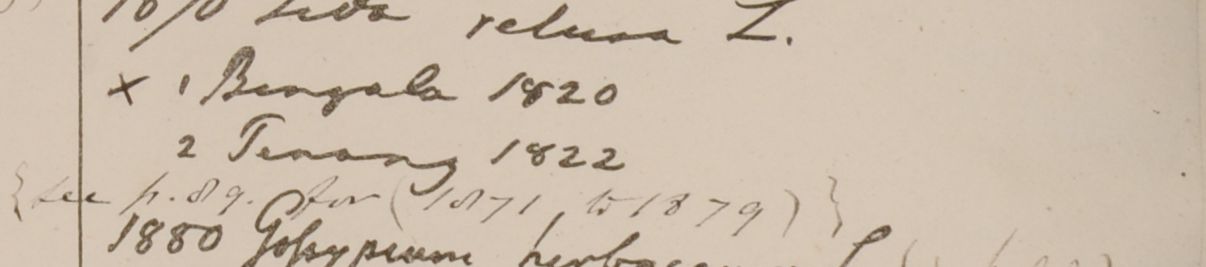 1870 Sida retusa L.
× 1 Bengala 1820
2 Penang 1822
{see p. 89. for (1871 to 1879)}
1880 Goſsypium herbaceum L